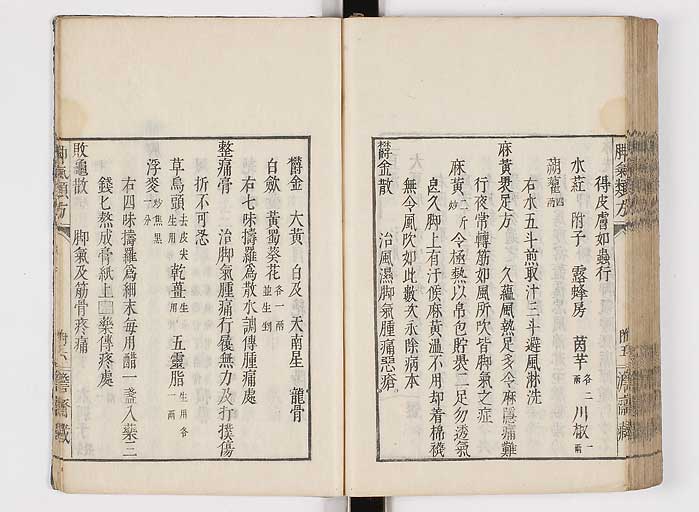 脚氣類方
得皮膚如蟲行
水葒 附子 露蜂房 茵芋各二兩 川椒一兩
蒴藋四兩
右水五斗煎取汁三斗避風淋洗
麻黄褁足方 久蘊風熱足多令麻隱痛難
行夜常轉筋如風所吹皆脚氣之症
麻黄二斤炒 令極熱以帛包貯褁二足勿透氣
良久脚上有汗候麻黄溫不用却着棉襪
無令風吹如此數次永除病本
欝金散 治風濕脚氣腫痛惡瘡
欝金 大黄 白及 天南星 龍骨
白歛 黄蜀葵花各一兩並生剉
右七味擣羅爲散水調傅腫痛處
整痛膏 治脚氣腫痛行履無力及打撲傷
折不可忍
草烏頭去皮尖生用 乾薑生用 五靈脂生用各一兩
浮麥炒焦黑一分
右四味擣羅爲細末每用醋一盞入藥三
錢匕熬成膏紙上 藥傅疼處
敗龜散 脚氣及筋骨疼痛
脚氣類方